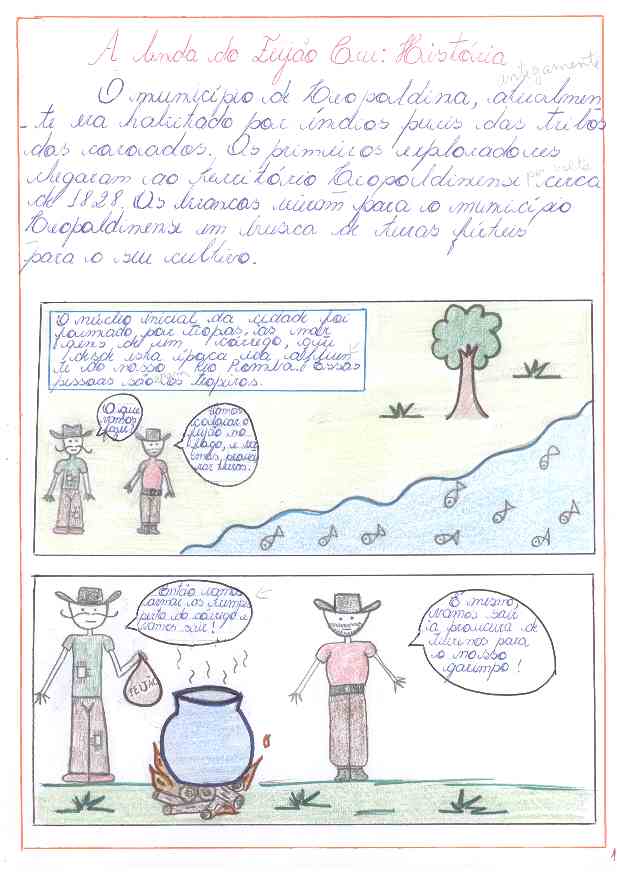 A lenda do Feijão Cru: História
antigamente
O município de Leopoldina, atualmen-
-te era habitado por índios puris das tribos
dos coroados. Os primeiros exploradores
chegaram ao território Leopoldinense cerca
por volta
de 1828. Os brancos vieram para o município
Leopoldinense em busca de terras férteis
para o seu cultivo.
O núcleo inicial da cidade foi
formado, por tropas, às mar
gens de um córrego, que
desde esta época era afluen
te do nosso Rio Pomba. Essas
pessoas são os tropeiros.
O que
vamos
fazer?
Vamos
colocar o
feijão no
fogo, e
procu
rar
Então vamos
armar
perto do córrego e
vamos sair!
FEIJÃO
É mesmo,
vamos sair
à procura de
para
o nosso
garimpo!
1